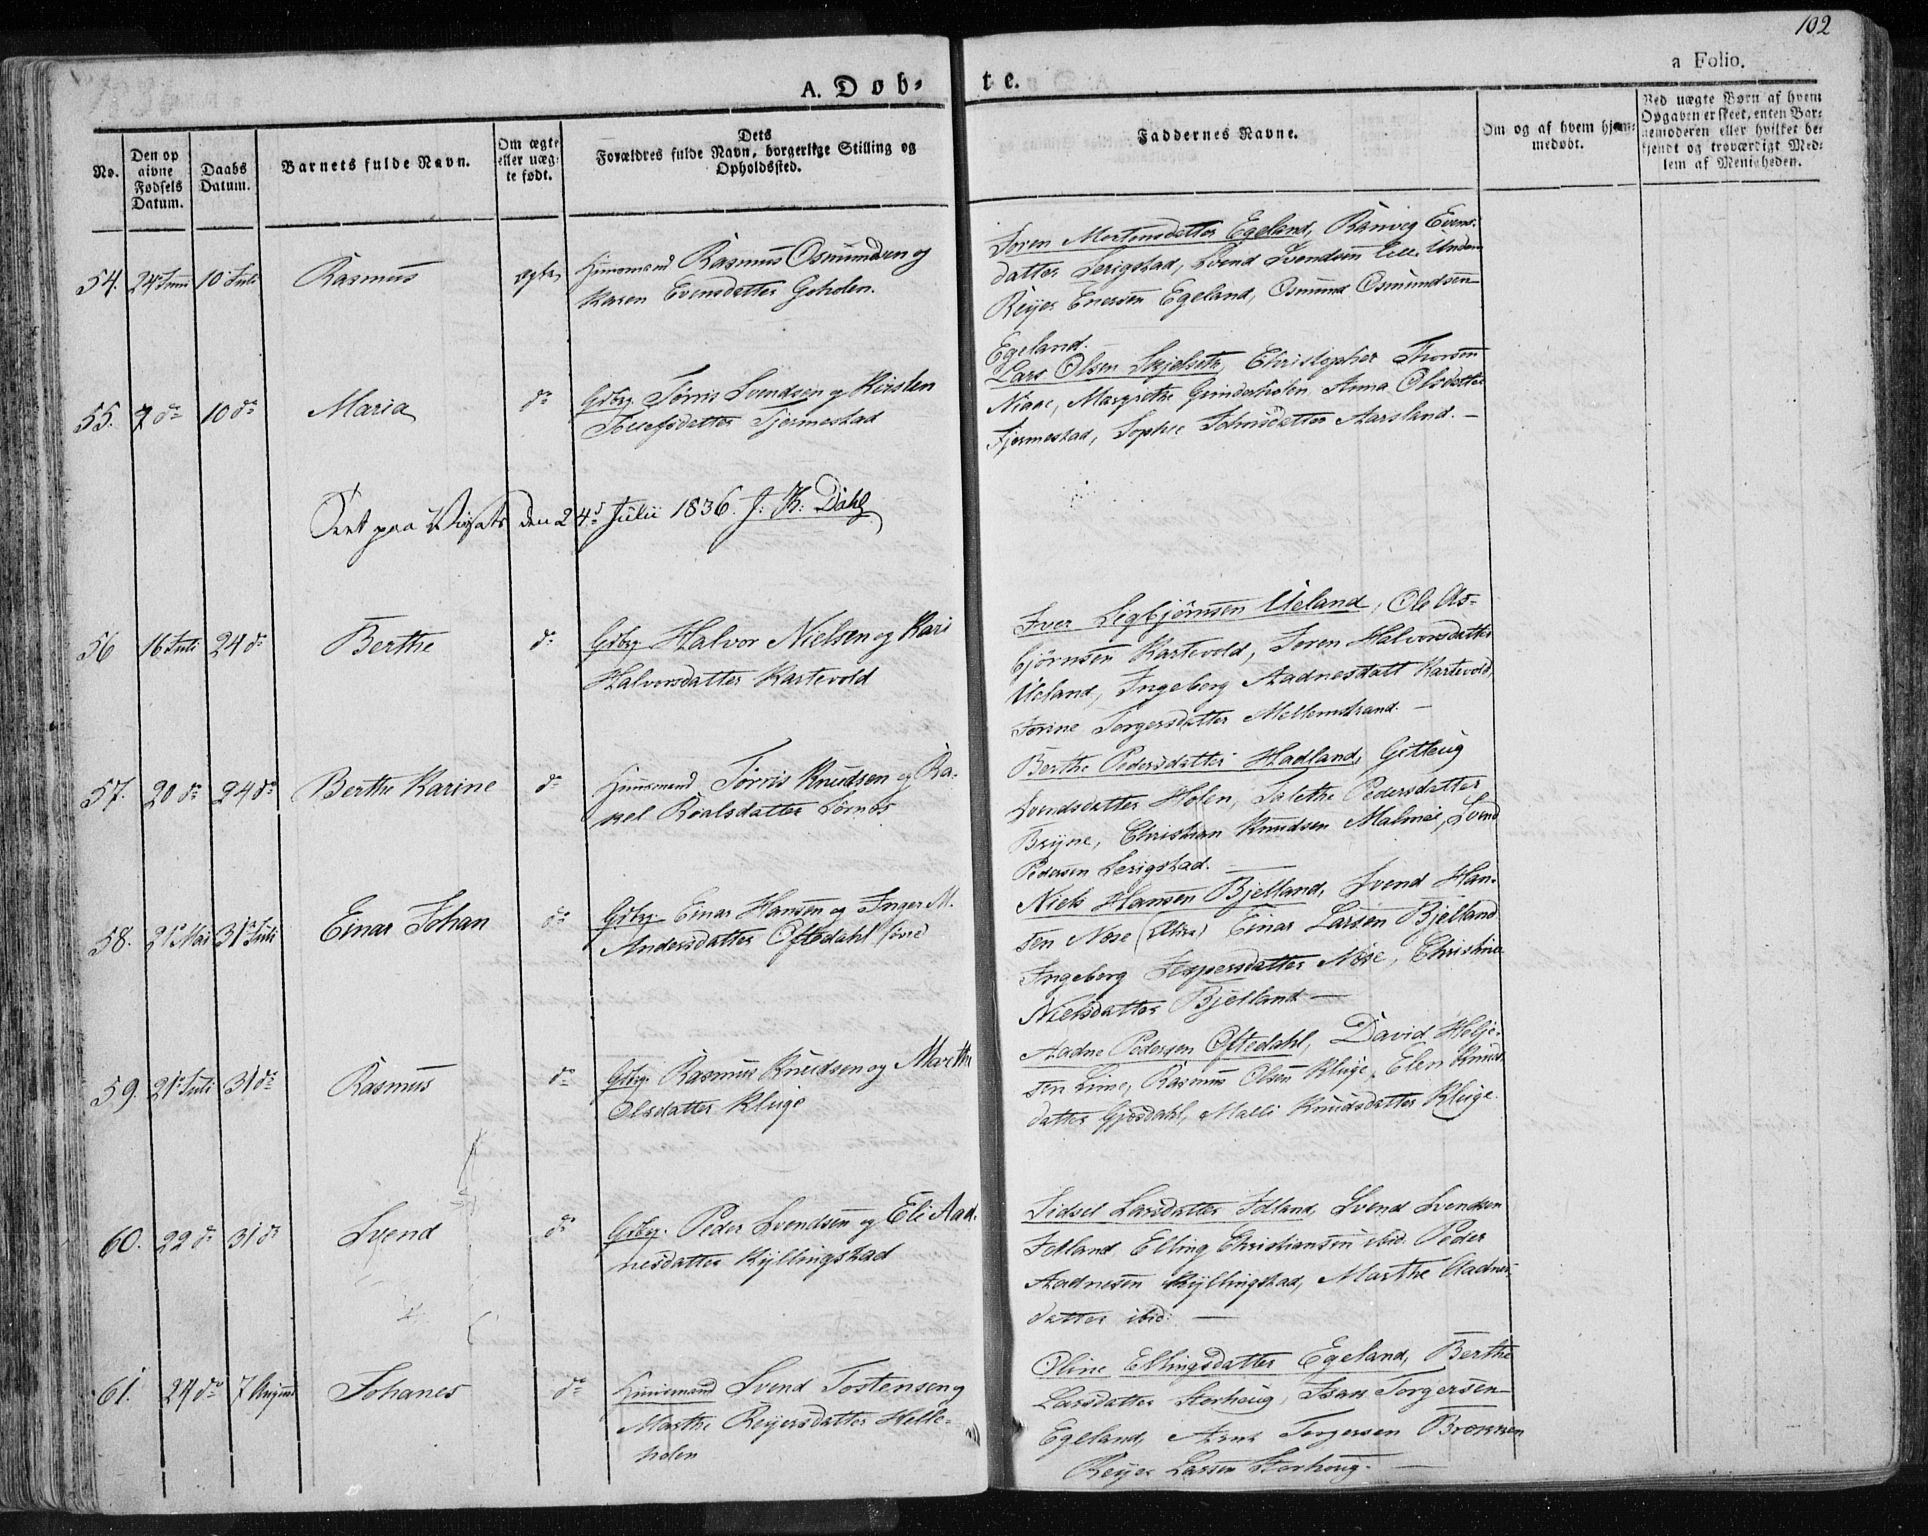 102
a Folio.
A. Døb-
te.
No.
Den op
givne
Fødsels
Datum.
Daabs
Datum.
Barnets fulde Navn.
Om ægte
eller uæg-
te født.
Dets
Forældres fulde Navn, borgerlige Stilling og
Opholdssted.
Faddernes Navne.
Om og af hvem hjem-
medøbt.
Ved uægte Børn af hvem
Opgaven er skeet, enten Bar-
nemoderen eller hvilket be-
kjendt og troværdigt Med-
lem af Menigheden.
54. 24 Juni 10 Juli Rasmus ægte
Huusmand Rasmus Osmundsen og
Karen Evensdatter Goholen.
Soren Mortensdatter Egeland, Ranveg Evens-
datter Serigstad, Svend Svendsen Lille Undem
Reyer Enersen Egeland, Osmund Osmundsen
Egeland.
55. 7 do 10 do Maria do
Gdbr. Tørris Svendsen og Kirsten
Tollefsdatter Tjermestad
Lars Olsen Skjelsete, Christopher Thorsen
Niaae, Margrethe Grimderholen Anna Olsdatter
Fjermestad, Sophie Johnsdatter Aarsland. —
Seet paa Visitats den 24de Julii 1836. J: K: Dahl
56 16 Juli 24 do Berthe do
Gdbr. Halvor Nielsen og Kari
Halvorsdatter Kartevold
Iver Segbjørnsen Ueland, Ole As-
bjørnsen Kartevold, Soren Halvorsdatter
Ueland, Ingeborg Aadnesdatt Kartevold,
Sorine Torgersdatter Mellemstrand. —
57. 20 do 24 do Berthe Karine do
Huusmand Tørris Knudsen og Ra-
kel Roalsdatter Sørnes
Berthe Pedersdatter Hadland, Gitlaug
Svendsdatter Holen, Salethe Pedersdatter
Bryne, Christian Knudsen Malmei, Svend
Pedersen Serigstad. —
58. 21 Mai 31 Juli Einar Johan do
Gdbr. Einar Hansen og Inger M.
Andersdatter Oftedahl søre
Niels Hansen Bjelland, Svend Han-
sen Nose Einar Larsen Bjelland
Ingeborg Jespersdatter Nose, Christine
Nielsdatter Bjelland —
59. 21 Juli 31 do Rasmus do
Gdbr. Rasmus Knudsen og Marthe
Olsdatter Kluge
Aadne Pedersen Oftedahl, David Holje-
sen Lime, Rasmus Olsen Kluge, Elen Knuds-
datter Gjesdahl, Malli Knudsdatter Kluge.
60. 22 do 31 do Svend do
Gdbr. Peder Svendsen og Eli Aad-
nesdatter Kyllingstad
Sidsel Larsdatter Fotland, Svend Svendsen
Fotland Elling Christiansen ibid. Peder
Aadnesen Kyllingstad, Marthe Aadnes-
datter ibid. —
61. 24 do 7 August Johanes do
Huusmand Svend Tostensen og
Marthe Reijersdatter Helle-
holen
Oline Ellingsdatter Egeland, Berthe
Larsdatter Storhoug, Isak Torgersen
Egeland, Arnt Torgersen Brønnen
Reyer Larsen Storhoug. —